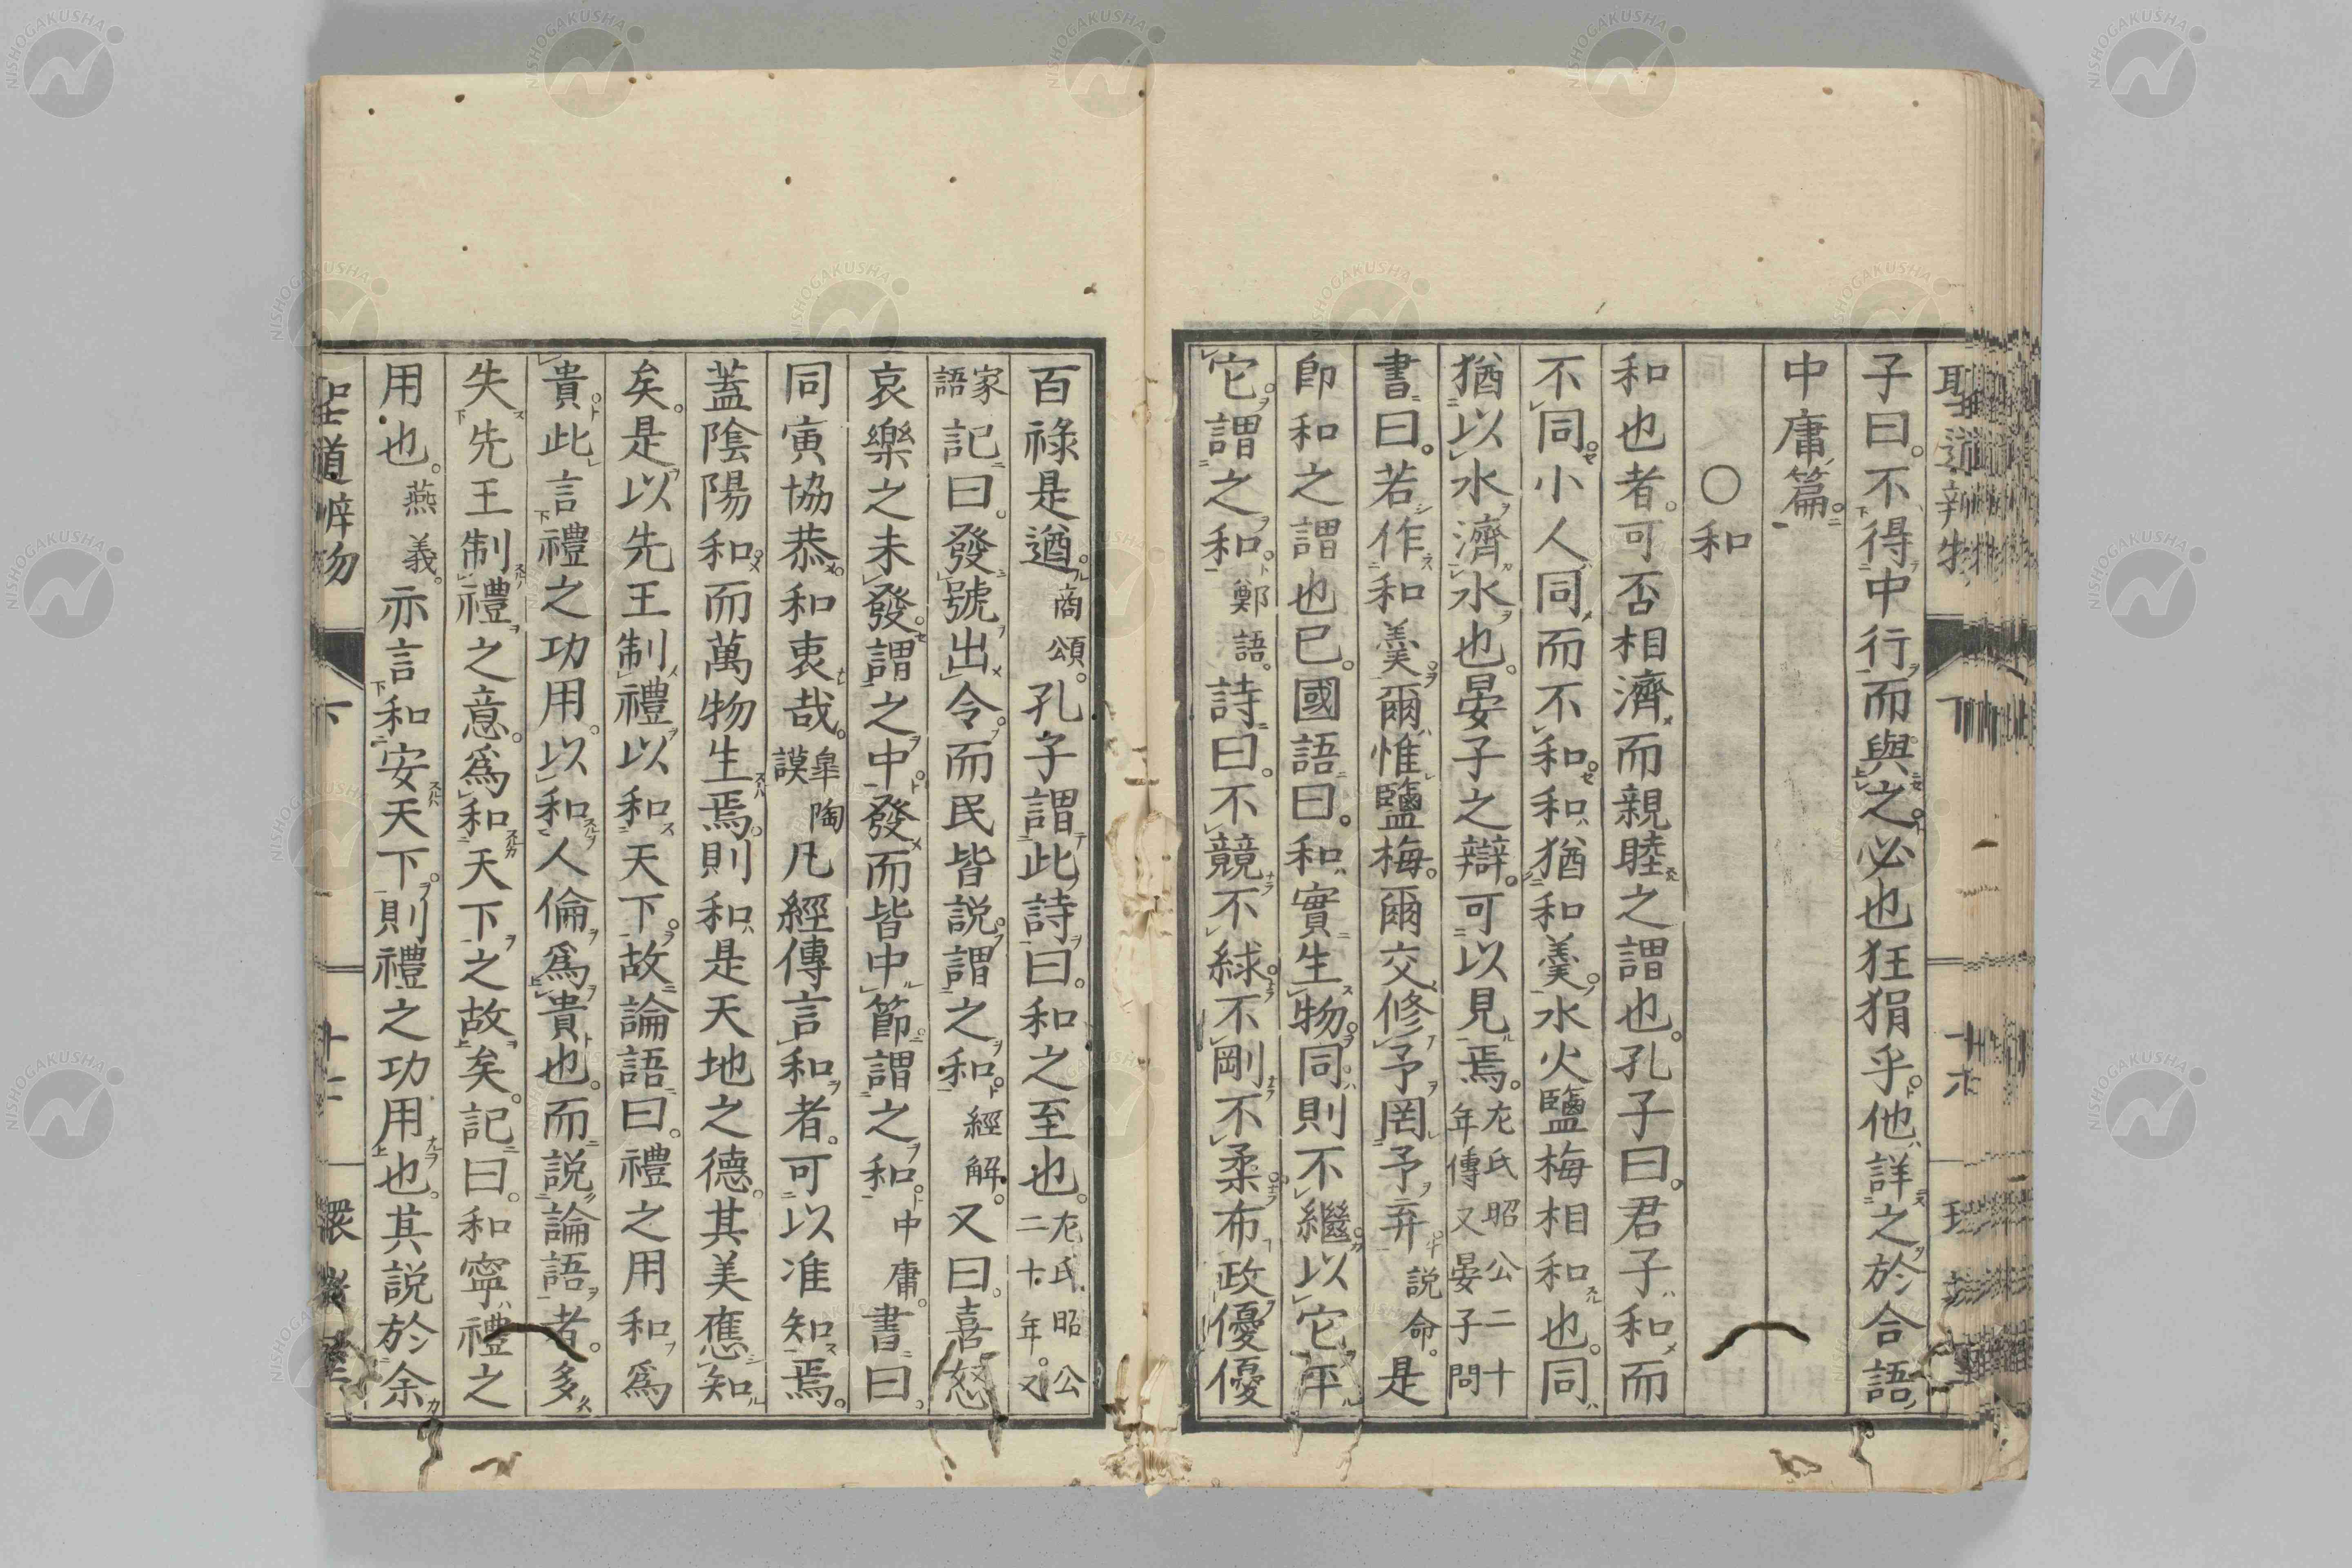 子曰。不得中行而與之。必也狂狷乎。他詳之於合語
中庸篇。
○和
和也者。可否相濟而親睦之謂也。孔子曰。君子和而
不同。小人同而不和。和猶和羹。水火鹽梅相和也。同
猶以水濟水也。晏子之辯。可以見焉。左氏昭公二十年傳又晏子問
書曰。若作和羹。爾惟鹽梅。爾交修予罔予弃說命。是
卽和之謂也已。國語曰。和實生物。同則不繼。以它平
它。謂之和。鄭語。詩曰。不競不絿。不剛不柔。布政優優
百祿是遒。商頌。孔子謂此詩曰。和之至也。左氏昭公二十年。又
家語記曰。發號出令。而民皆說。謂之和。經解。又曰。喜怒
哀樂之未發。謂之中。發而皆中節。謂之和。中庸。書曰。
同寅協恭。和衷哉。皐陶謨凡經傳言和者。可以准知焉。
蓋陰陽和。而萬物生焉。則和是天地之德。其美應知
矣。是以先王制禮以和天下。故論語曰。禮之用和爲
貴。此言禮之功用。以和人倫爲貴也。而說論語者。多
失先王制禮之意。爲和天下之故矣。記曰。和寧禮之
用也。燕義。亦言和安天下。則禮之功用也。其說於余
聖道辨物
下